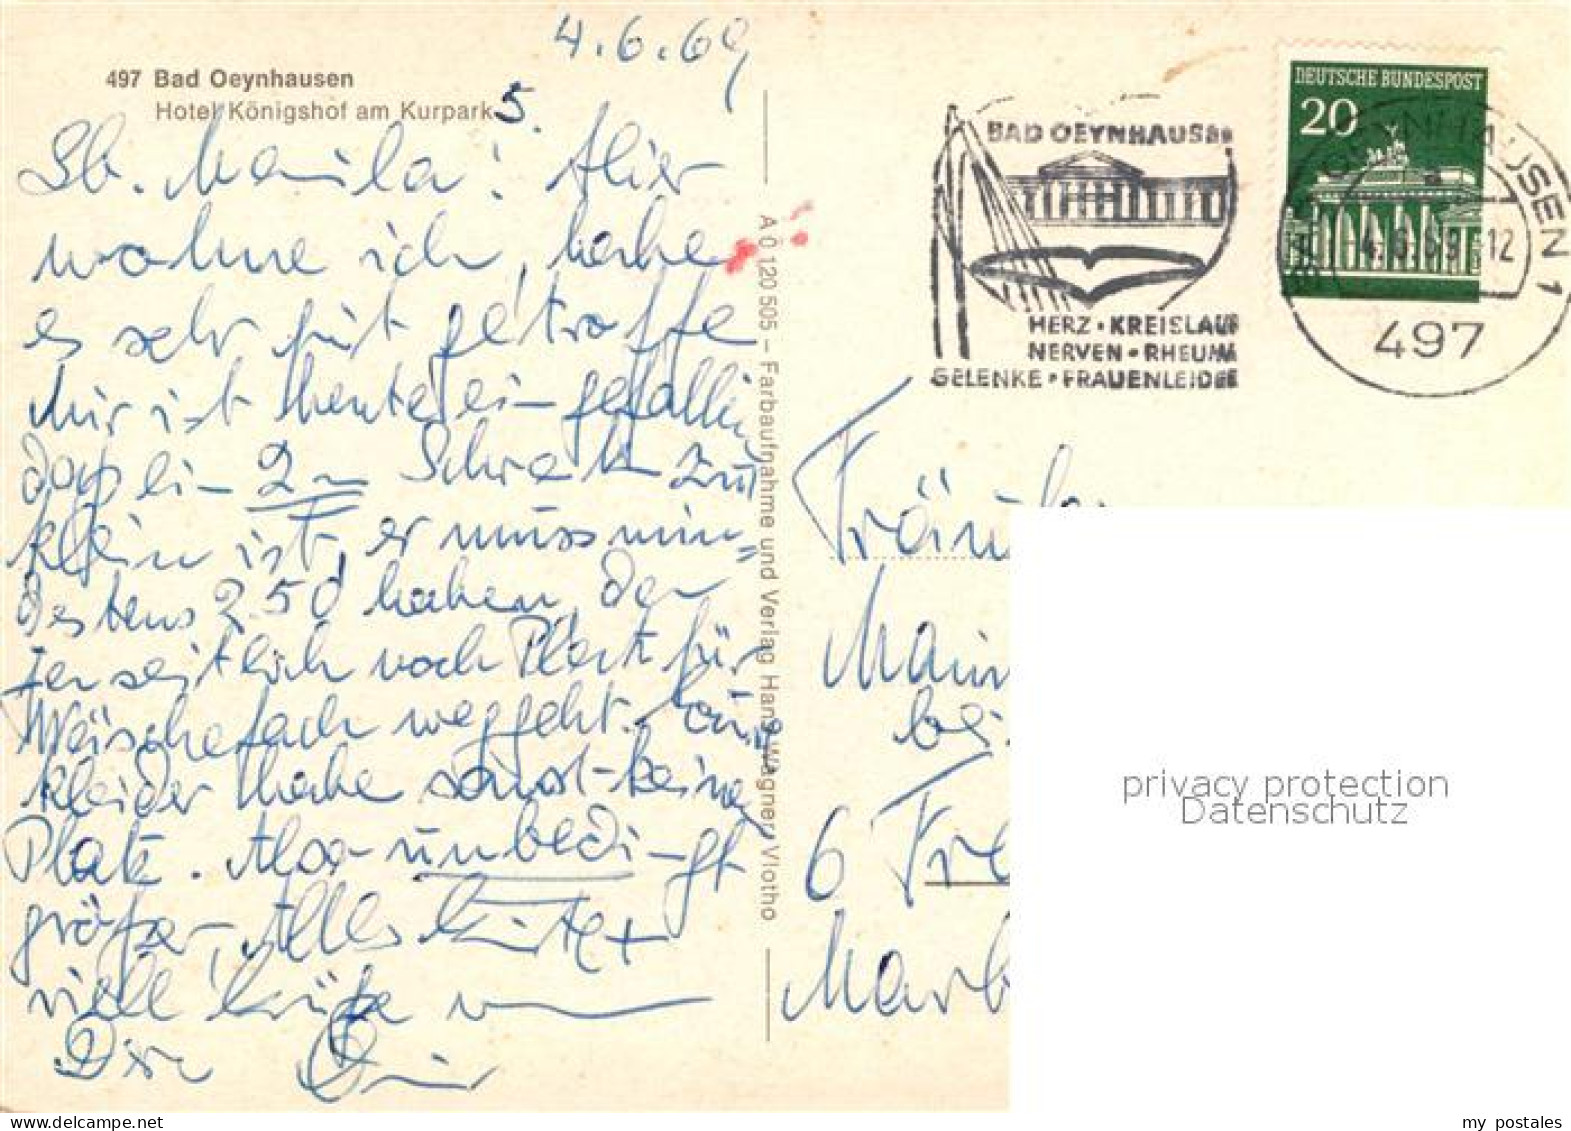 4.6.69
497 Bad Oeynhausen
Hotel Königshof am Kurpark
5.
Lb. Manila! Hier
wohne ich, habe
es sehr gut getroffe
Mir ist heute ei- gefalle
daß ei- 2m Schrank zu
klein ist, er muss min=
destens 2.50 haben, da
seitlich noch Platz für
Wäschefach weggeht. Für
Kleider habe sonst keine
Platz. Also unbedi-gt
größer, Alles Gute +
viele Grüße
Dir
A 0 120 505 – Farbaufnahme und Verlag Hans Wagner, Vlotho
BAD OEYNHAUSEN
HERZ • KREISLAUF
NERVEN • RHEUMA
GELENKE • FRAUENLEIDEN
DEUTSCHE BUNDESPOST
20
OEYNHAUSEN 1
-4.6.69 12
497
Fräul
Main
bei
6 Fra
Marb
privacy protection
Datenschutz
my_postales